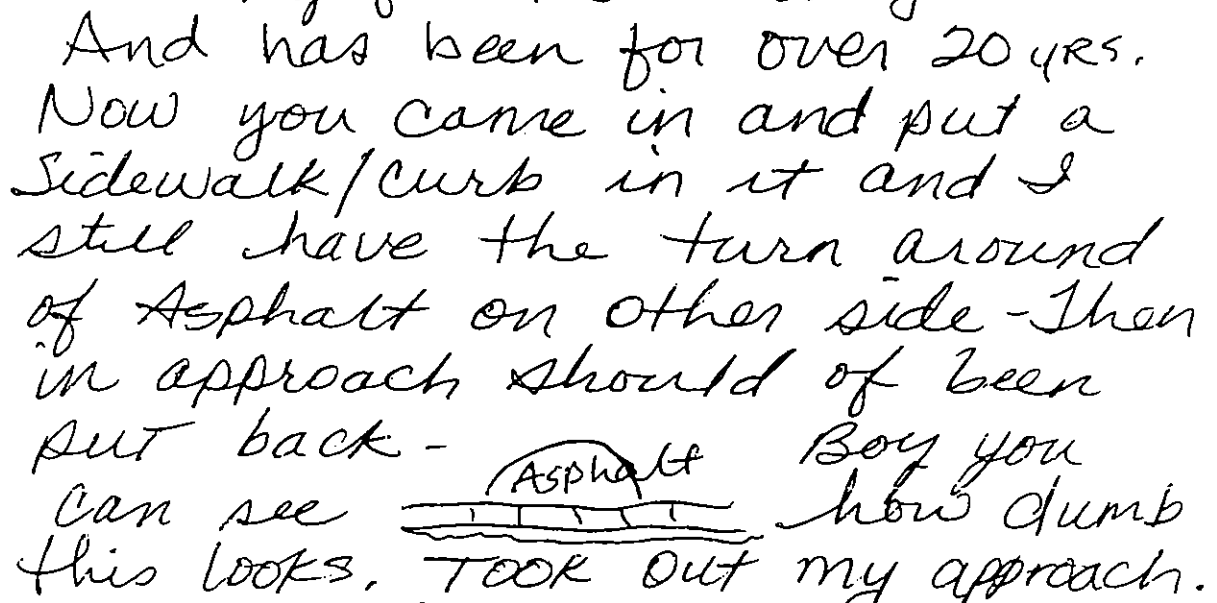 And has been for over 20 yRs.
Now you came in and put a
Sidewalk/curb in it and I
still have the turn around
of Asphalt on other side - Then
in approach should of been
put back - Asphalt Boy you
can see how dumb
this looks. Took out my approach.